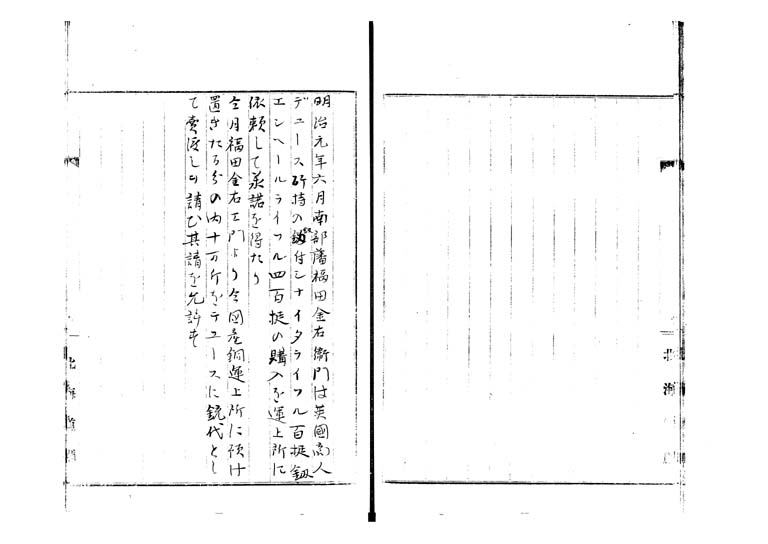 明治元年六月南部藩福田金右衛門は英國商人
デュース所持の劔付シナイタライフル百挺劔
エンヘールライフル四百挺の購入を運上所に
依頼して承諾を得たり
仝月福田金右エ門より仝國産銅運上所に預け
置きたる分の内十万斤をデュースに銃代とし
て賣渡しを請ひ其請を允許す
北海